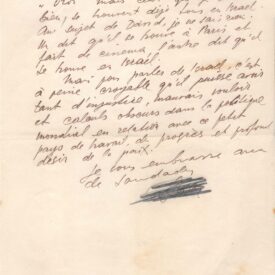 mais
bien, se trouvent déjà tous en Israël.
Au sujet de David, je ne sais rien.
Un dit qu'il se trouve à Paris et
fait de cinéma, l'autre dit qu'il
se trouve en Israël.
Mais pour parler de Israël, c'est
à peine croyable qu'il puisse avoir
tant d'injustice, mauvais vouloir
et calculs obscurs dans la politique
mondial en relation avec ce petit
pays de travail, de progrès et profond
désir de la paix.
Je vous embrasse avec
de Saudades